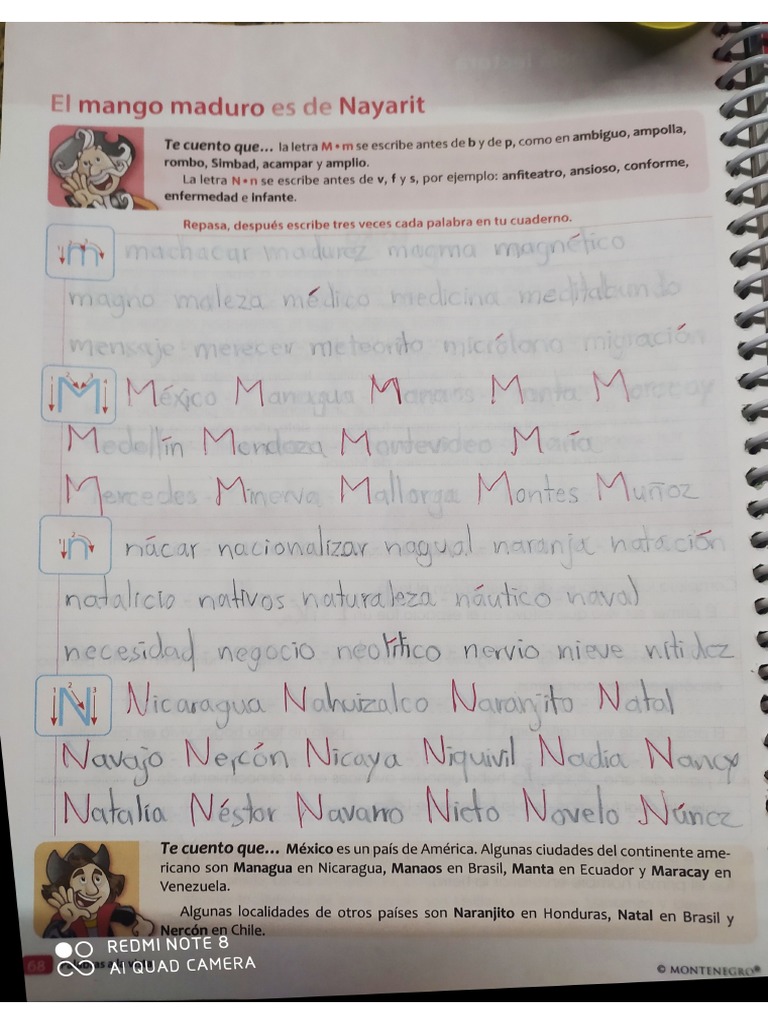 El mango maduro es de Nayarit
Te cuento que... la letra M•m se escribe antes de b y de p, como en ambiguo, ampolla,
rombo, Simbad, acampar y amplio.
La letra N•n se escribe antes de v, f y s, por ejemplo: anfiteatro, ansioso, conforme,
enfermedad e infante.
Repasa, después escribe tres veces cada palabra en tu cuaderno.
m machacar madurez magma magnético
magno maleza médico medicina meditabundo
mensaje merecer meteorito micrólono migración
M México Managua Manaos Manta Maracay
Medellín Mendoza Montevideo María
Mercedes Minerva Mallorga Montes Muñoz
n nácar nacionalizar nagual naranja natación
natalicio nativos naturaleza náutico naval
necesidad negocio neolítico nervio nieve nitidez
N Nicaragua Nahuizalco Naranjito Natal
Navajo Nercón Nicaya Niquivil Nadia Nancy
Natalia Néstor Navarro Nieto Novelo Núñez
Te cuento que... México es un país de América. Algunas ciudades del continente ame-
ricano son Managua en Nicaragua, Manaos en Brasil, Manta en Ecuador y Maracay en
Venezuela.
Algunas localidades de otros países son Naranjito en Honduras, Natal en Brasil y
Nercón en Chile.
68
© MONTENEGRO®
REDMI NOTE 8
AI QUAD CAMERA